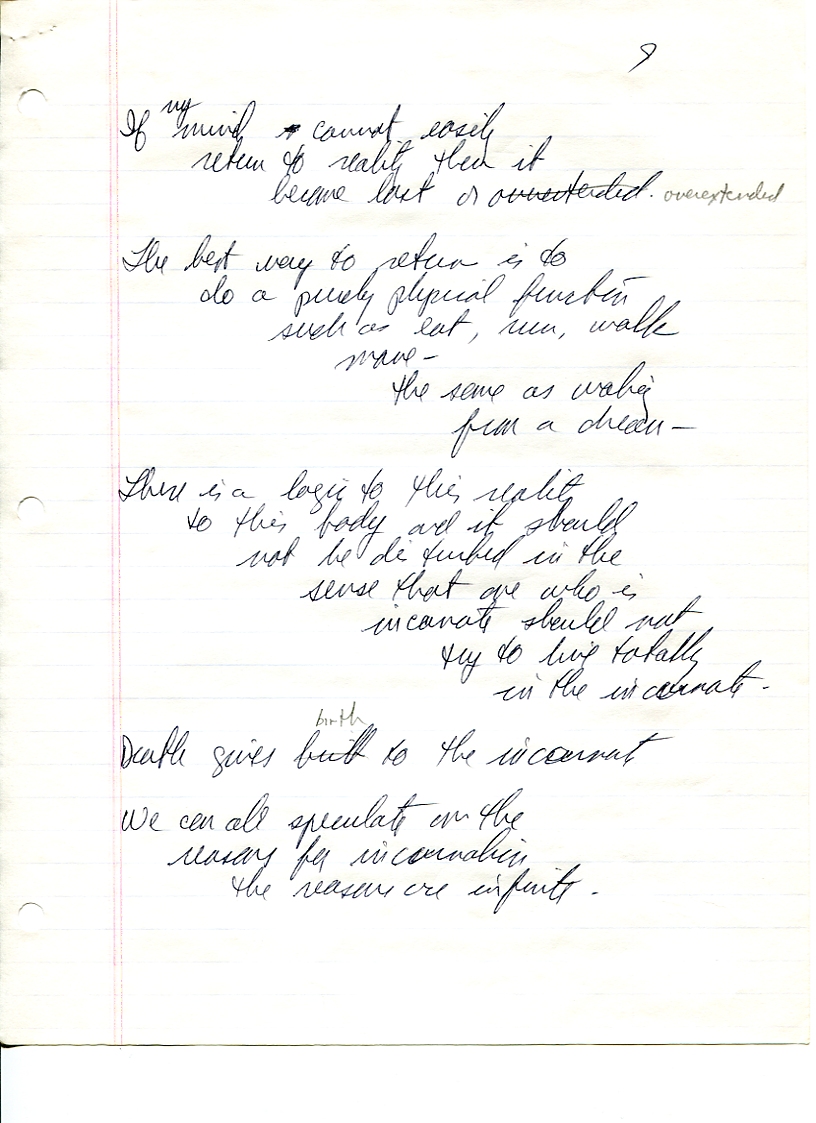 9
If my mind cannot easily
return to reality then it
became lost or overextended. overextended
The best way to return is to
do a purely physical function
such as eat, run, walk
move -
the same as waking
from a dream -
There is a logic to this reality
to this body and it should
not be disturbed in the
sense that one who is
incarnate should not
try to live totally
in the incarnate -
birth
Death gives birth to the incarnat
We can all speculate on the
reasons for incarnation
the reasons are infinite.